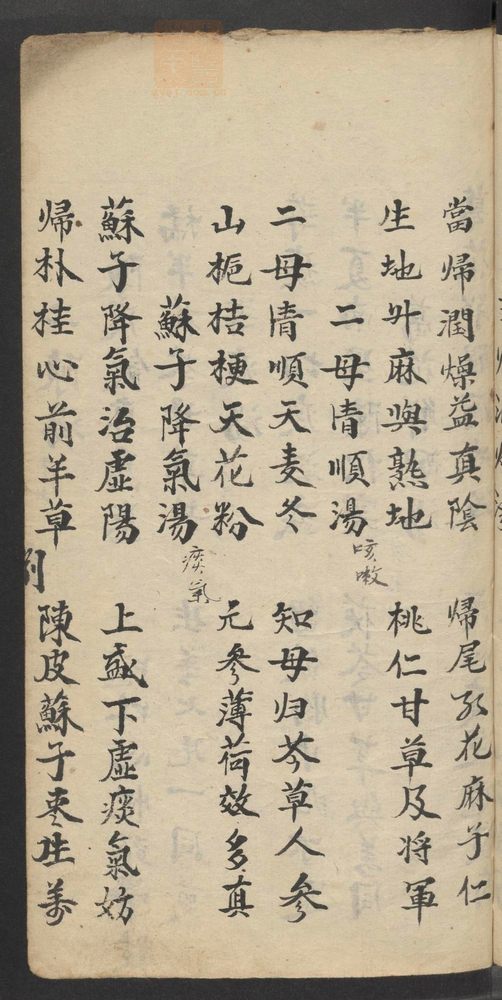 當歸潤燥益真陰 歸尾紅花麻子仁
生地升麻與熟地 桃仁甘草及将軍
二母清順湯 咳嗽
二母清順天麦冬 知母归芩草人參
山梔桔梗天花粉 元參薄荷效多真
蘇子降氣湯 痰氣
蘇子降氣治虛陽 上盛下虛痰氣妨
歸朴桂心前半草 陳皮蘇子枣生姜